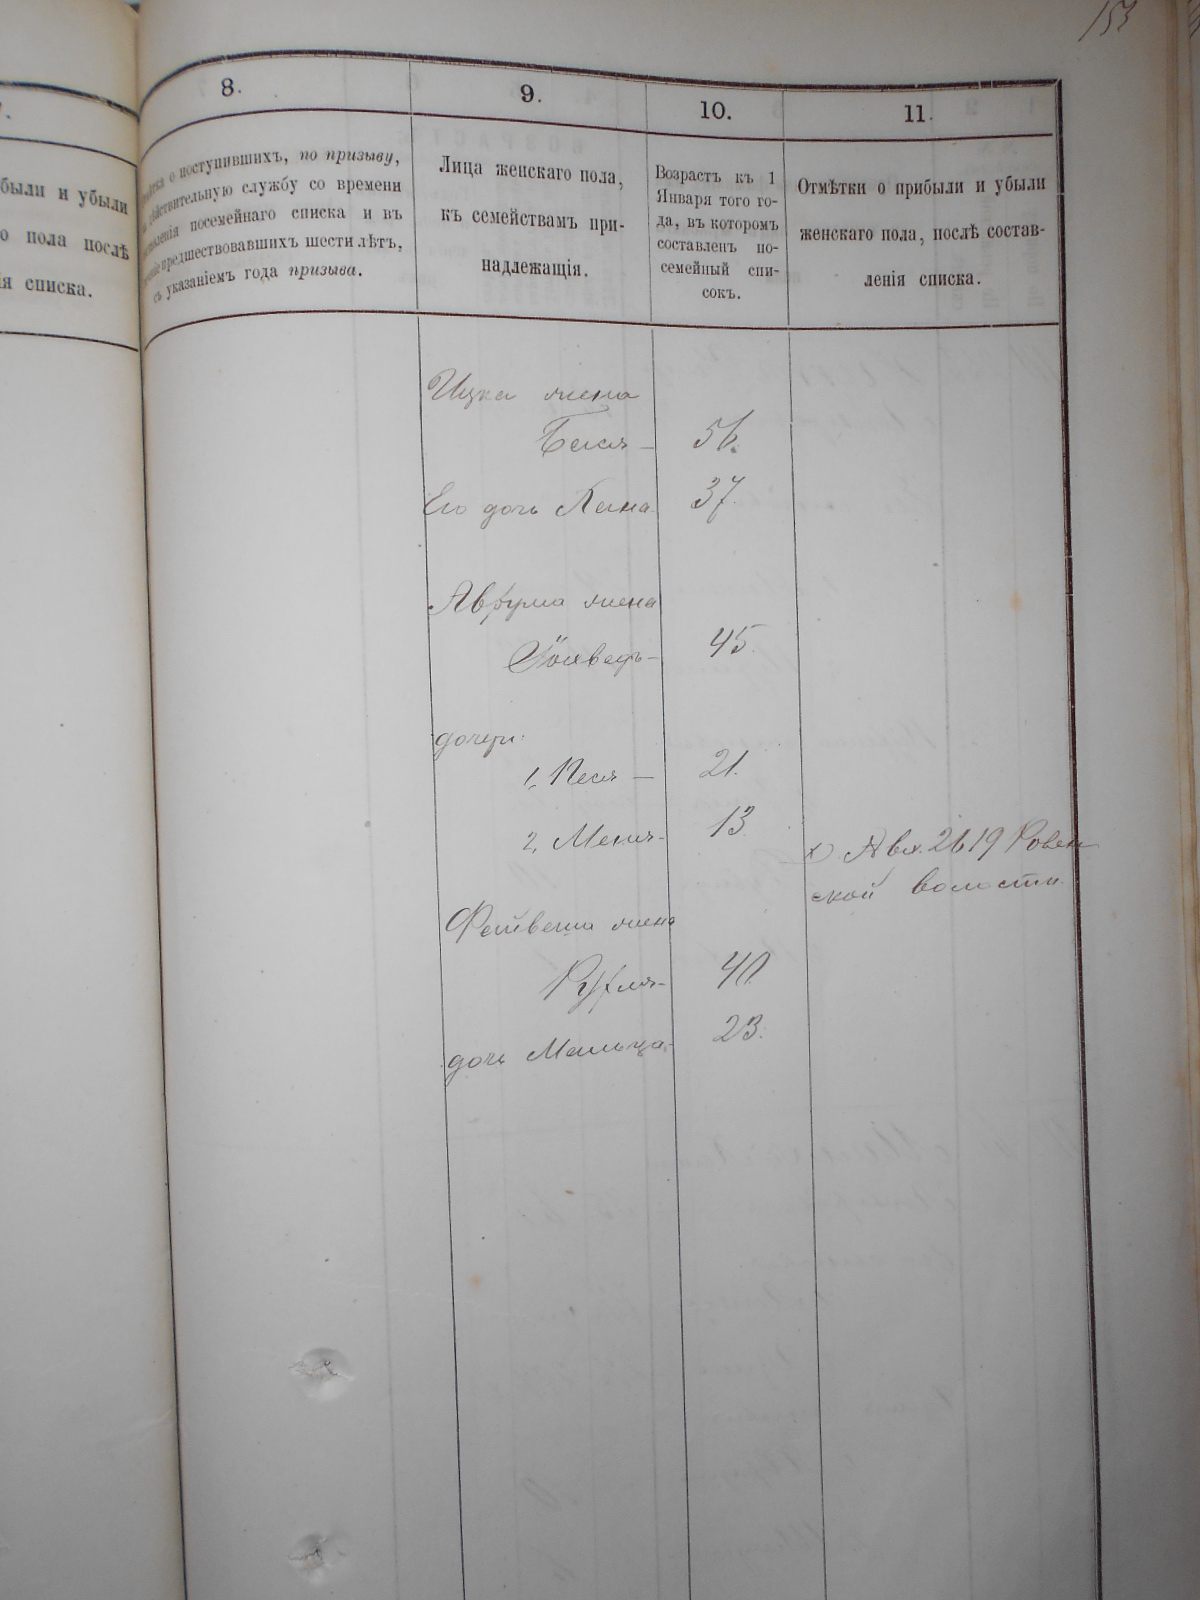 153
7.
были и убыли
о пола послѣ
ія списка.
8.
о поступившихъ, по призыву,
дѣйствительную службу со времени
посемейнаго списка и въ
предшествовавшихъ шести лѣтъ,
съ указаніемъ года призыва.
9.
Лица женскаго пола,
къ семействамъ при-
надлежащія.
10.
Возрастъ къ 1
Января того го-
да, въ которомъ
составленъ по-
семейный спи-
сокъ.
11.
Отмѣтки о прибыли и убыли
женскаго пола, послѣ состав-
ленія списка.
Ицка жена
Бейля — 56.
Его дочь 37.
Аврума жена
45.
дочери:
1, Песя — 21.
2, Меня — 13.
2619 Ровен
ской волости.
Фейвеша жена
40
дочь Мальца 23.